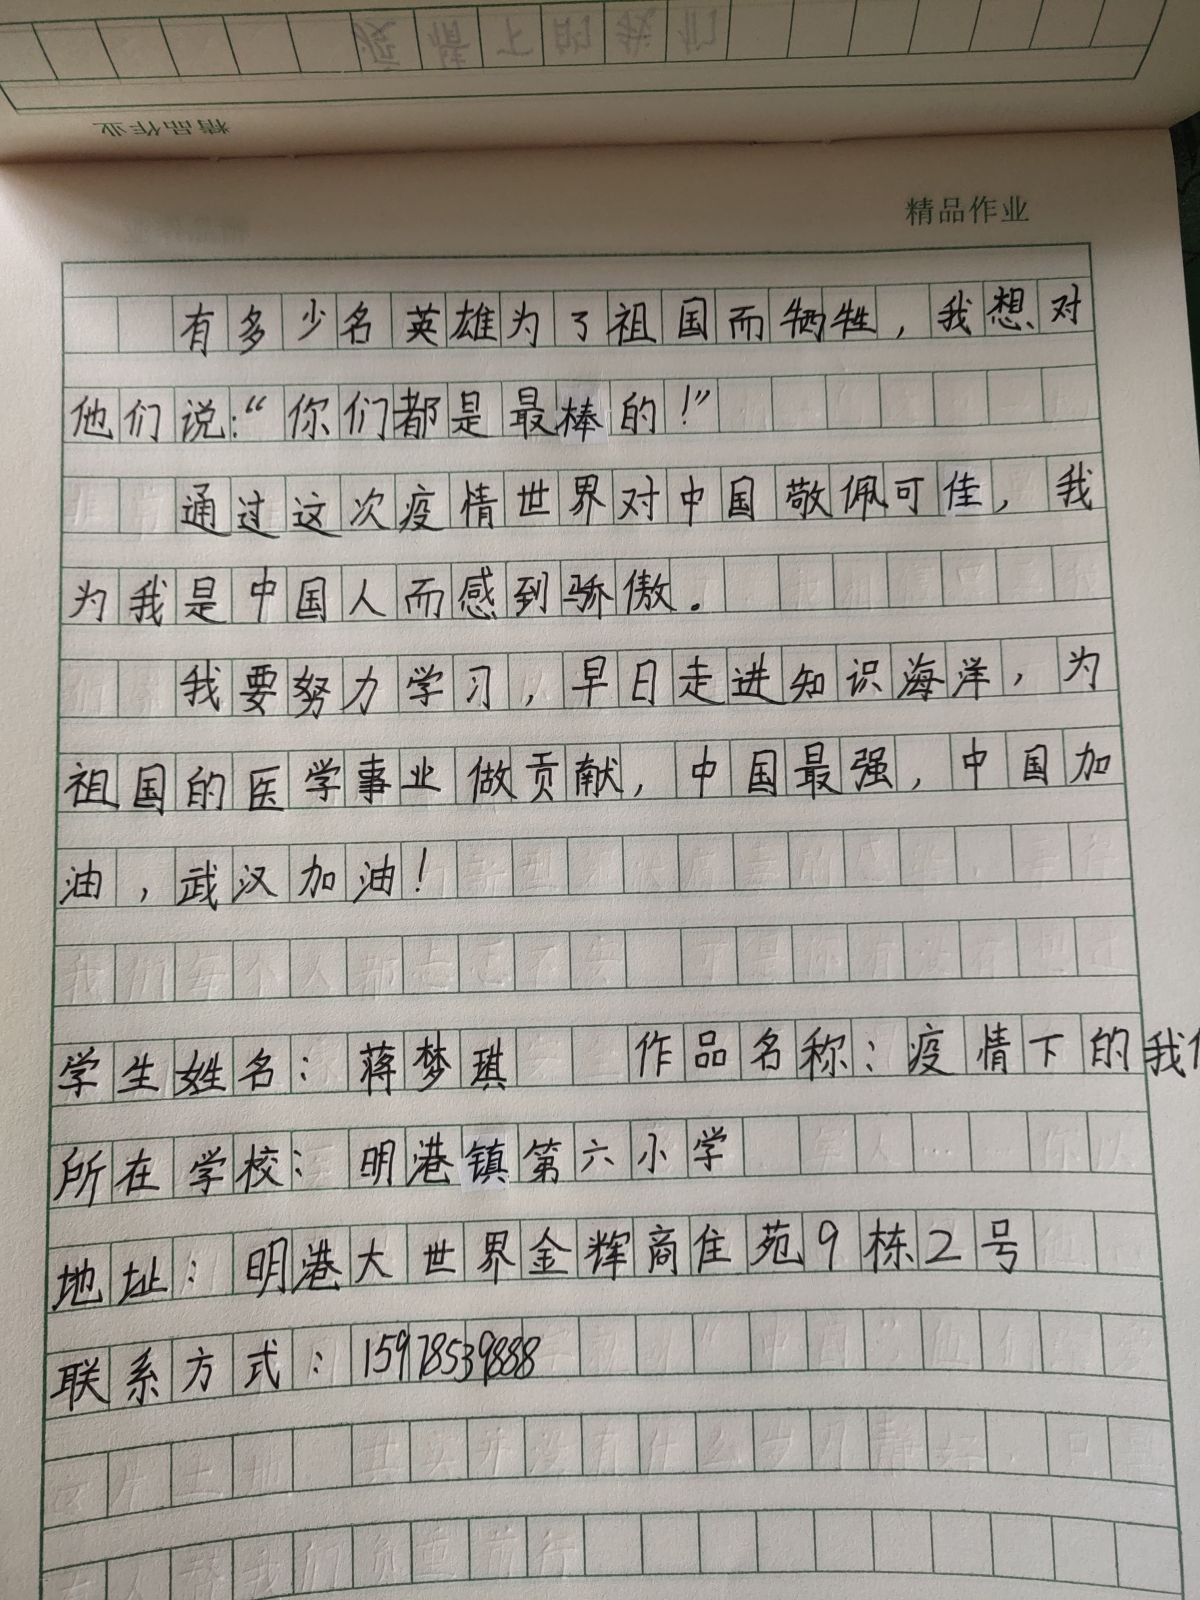 疫情下的我们
精品作业
精品作业
有多少名英雄为了祖国而牺牲，我想对
他们说：“你们都是最棒的！”
通过这次疫情世界对中国敬佩可佳，我
为我是中国人而感到骄傲。
我要努力学习，早日走进知识海洋，为
祖国的医学事业做贡献，中国最强，中国加
油，武汉加油！
学生姓名：蒋梦琪 作品名称：疫情下的我们
所在学校：明港镇第六小学
地址：明港大世界金辉商住苑9栋2号
联系方式：15978539888